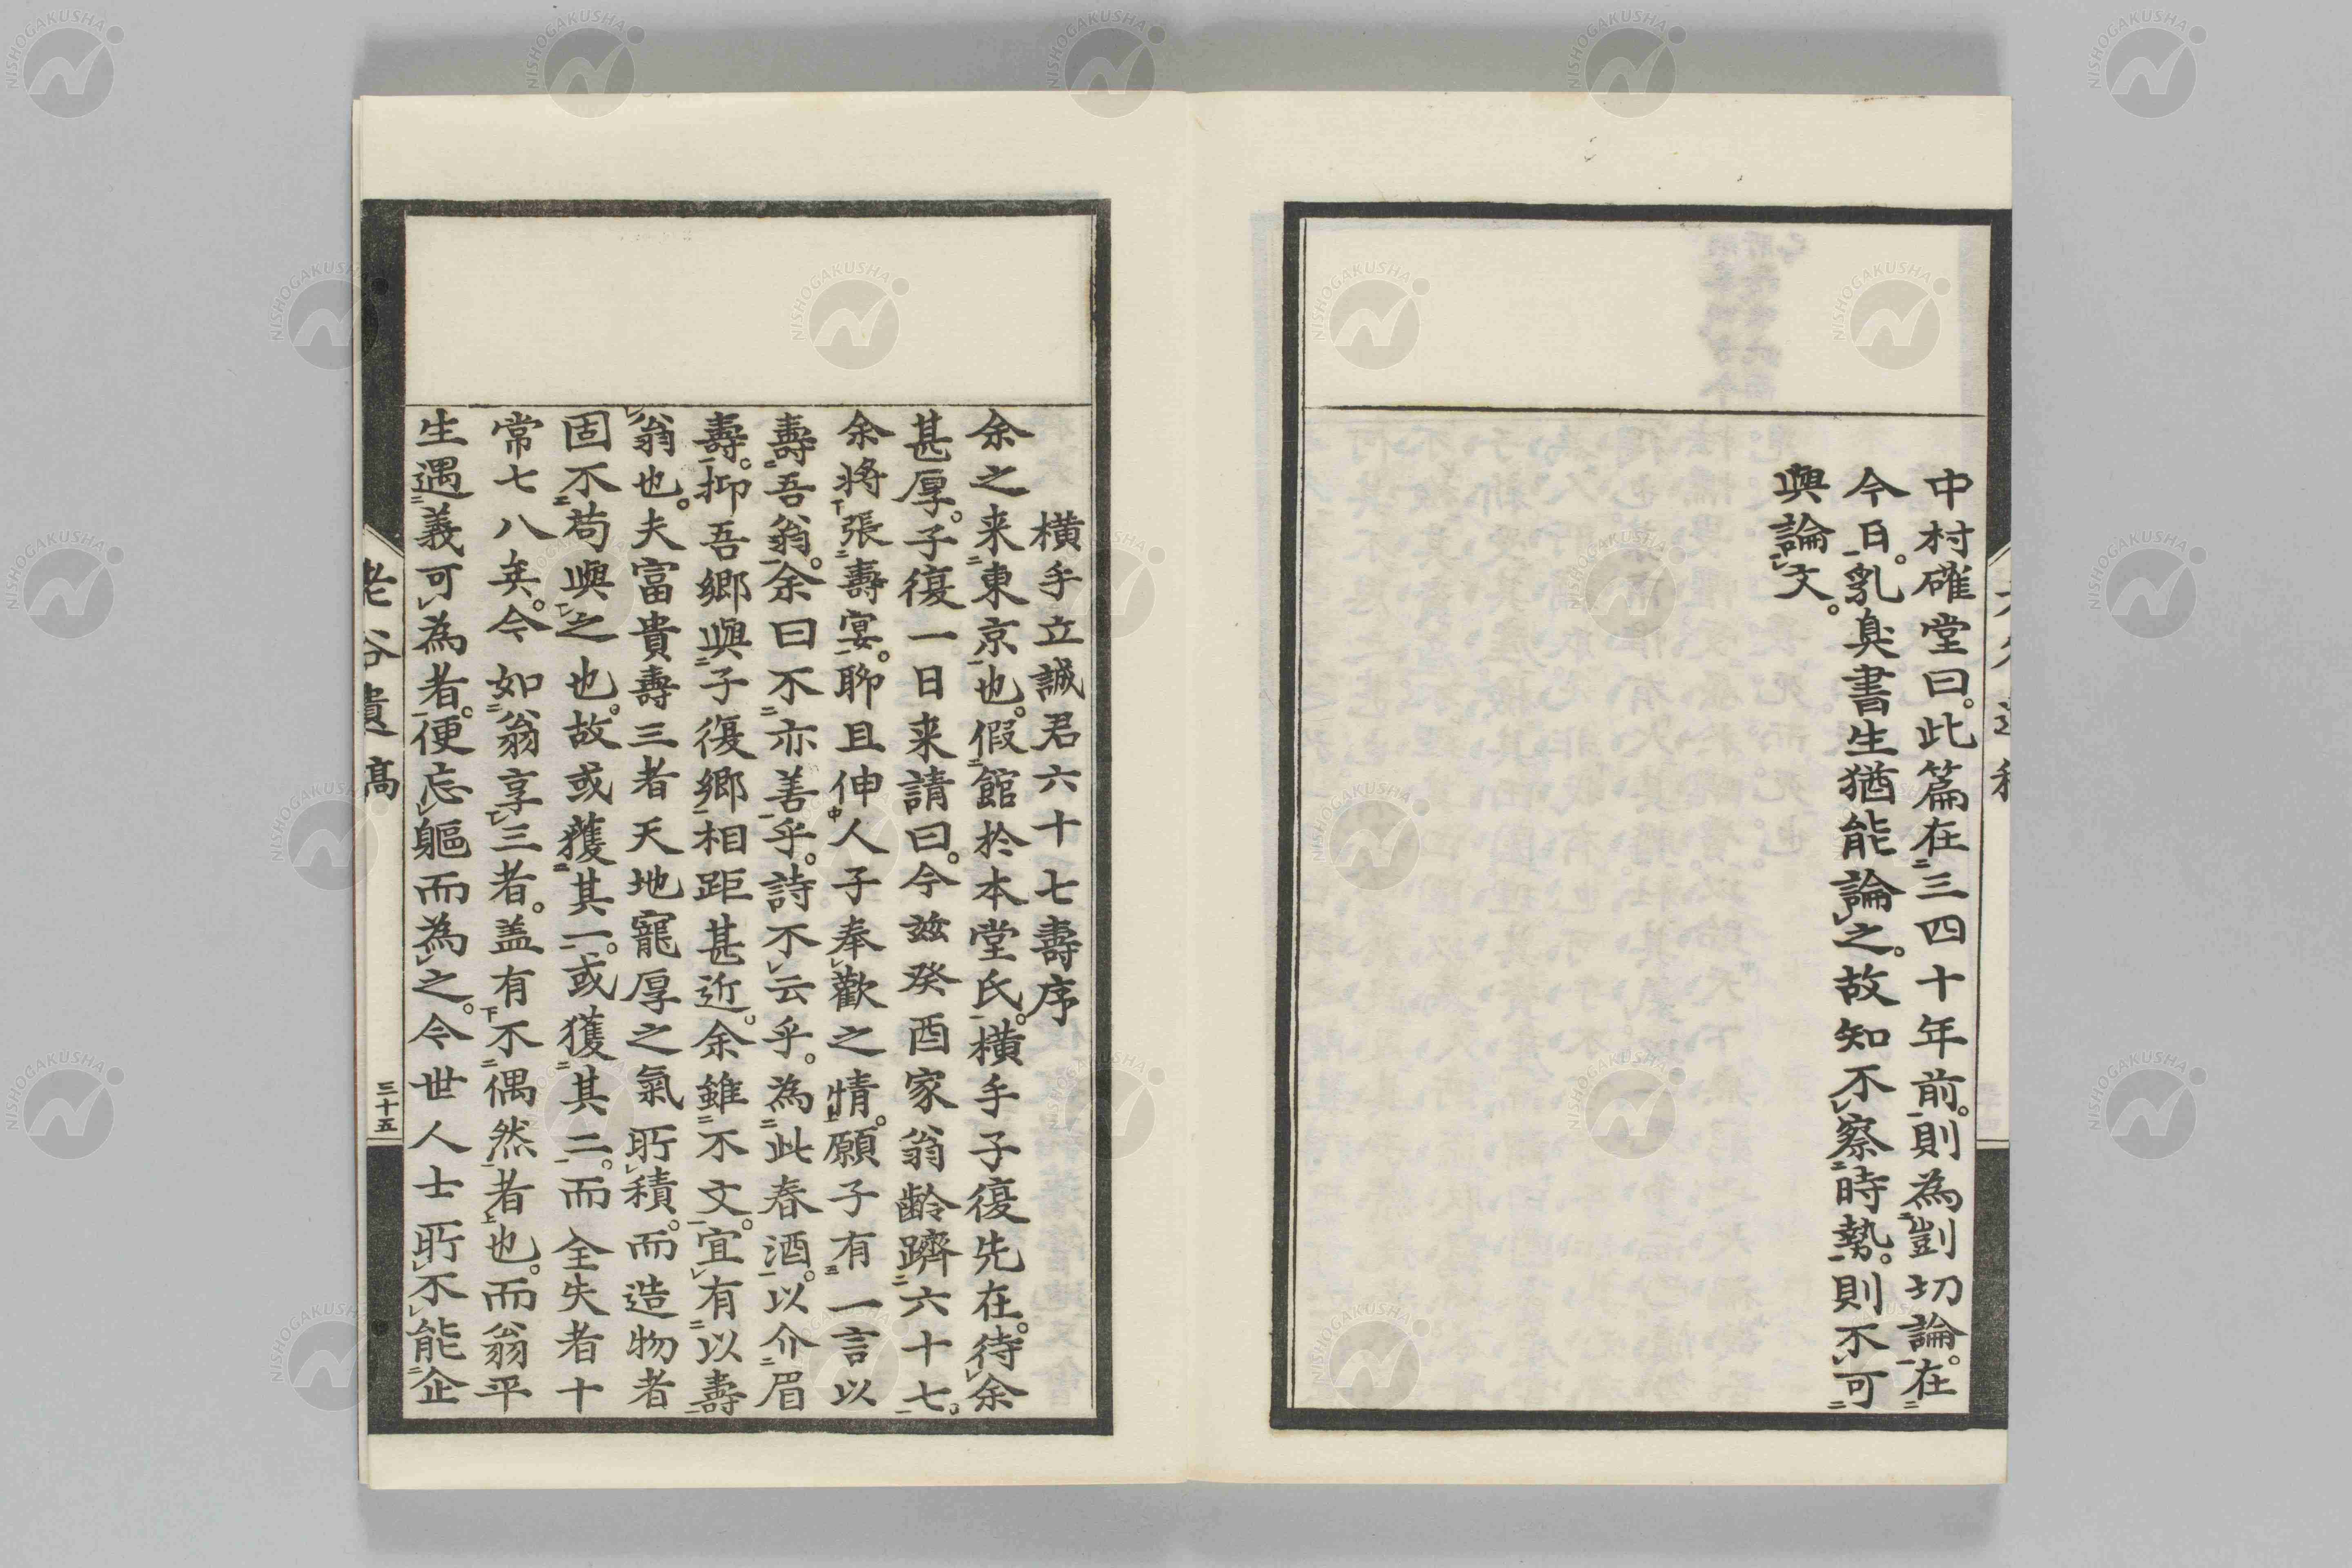 中村確堂曰。此篇在三四十年前。則為剴切論。在
今日。乳臭書生猶能論之。故知不察時勢。則不可
與論文。
橫手立誠君六十七壽序
余之来東京也。假館於本堂氏。橫手子復先在。待余
甚厚。子復一日来請曰。今茲癸酉家翁齡躋六十七。
余將張壽宴。聊且伸人子奉歡之情。願子有一言以
壽吾翁。余曰不亦善乎。詩不云乎。為此春酒。以介眉
壽。抑吾鄉與子復鄉相距甚近。余雖不文。宜有以壽
翁也。夫富貴壽三者天地寵厚之氣所積。而造物者
固不苟與之也。故或獲其一。或獲其二。而全失者十
常七八矣。今如翁享三者。盖有不偶然者也。而翁平
生遇義可為者。便忘軀而為之。今世人士所不能企
老谷遺稿
三十五
NISHOGAKUSHA